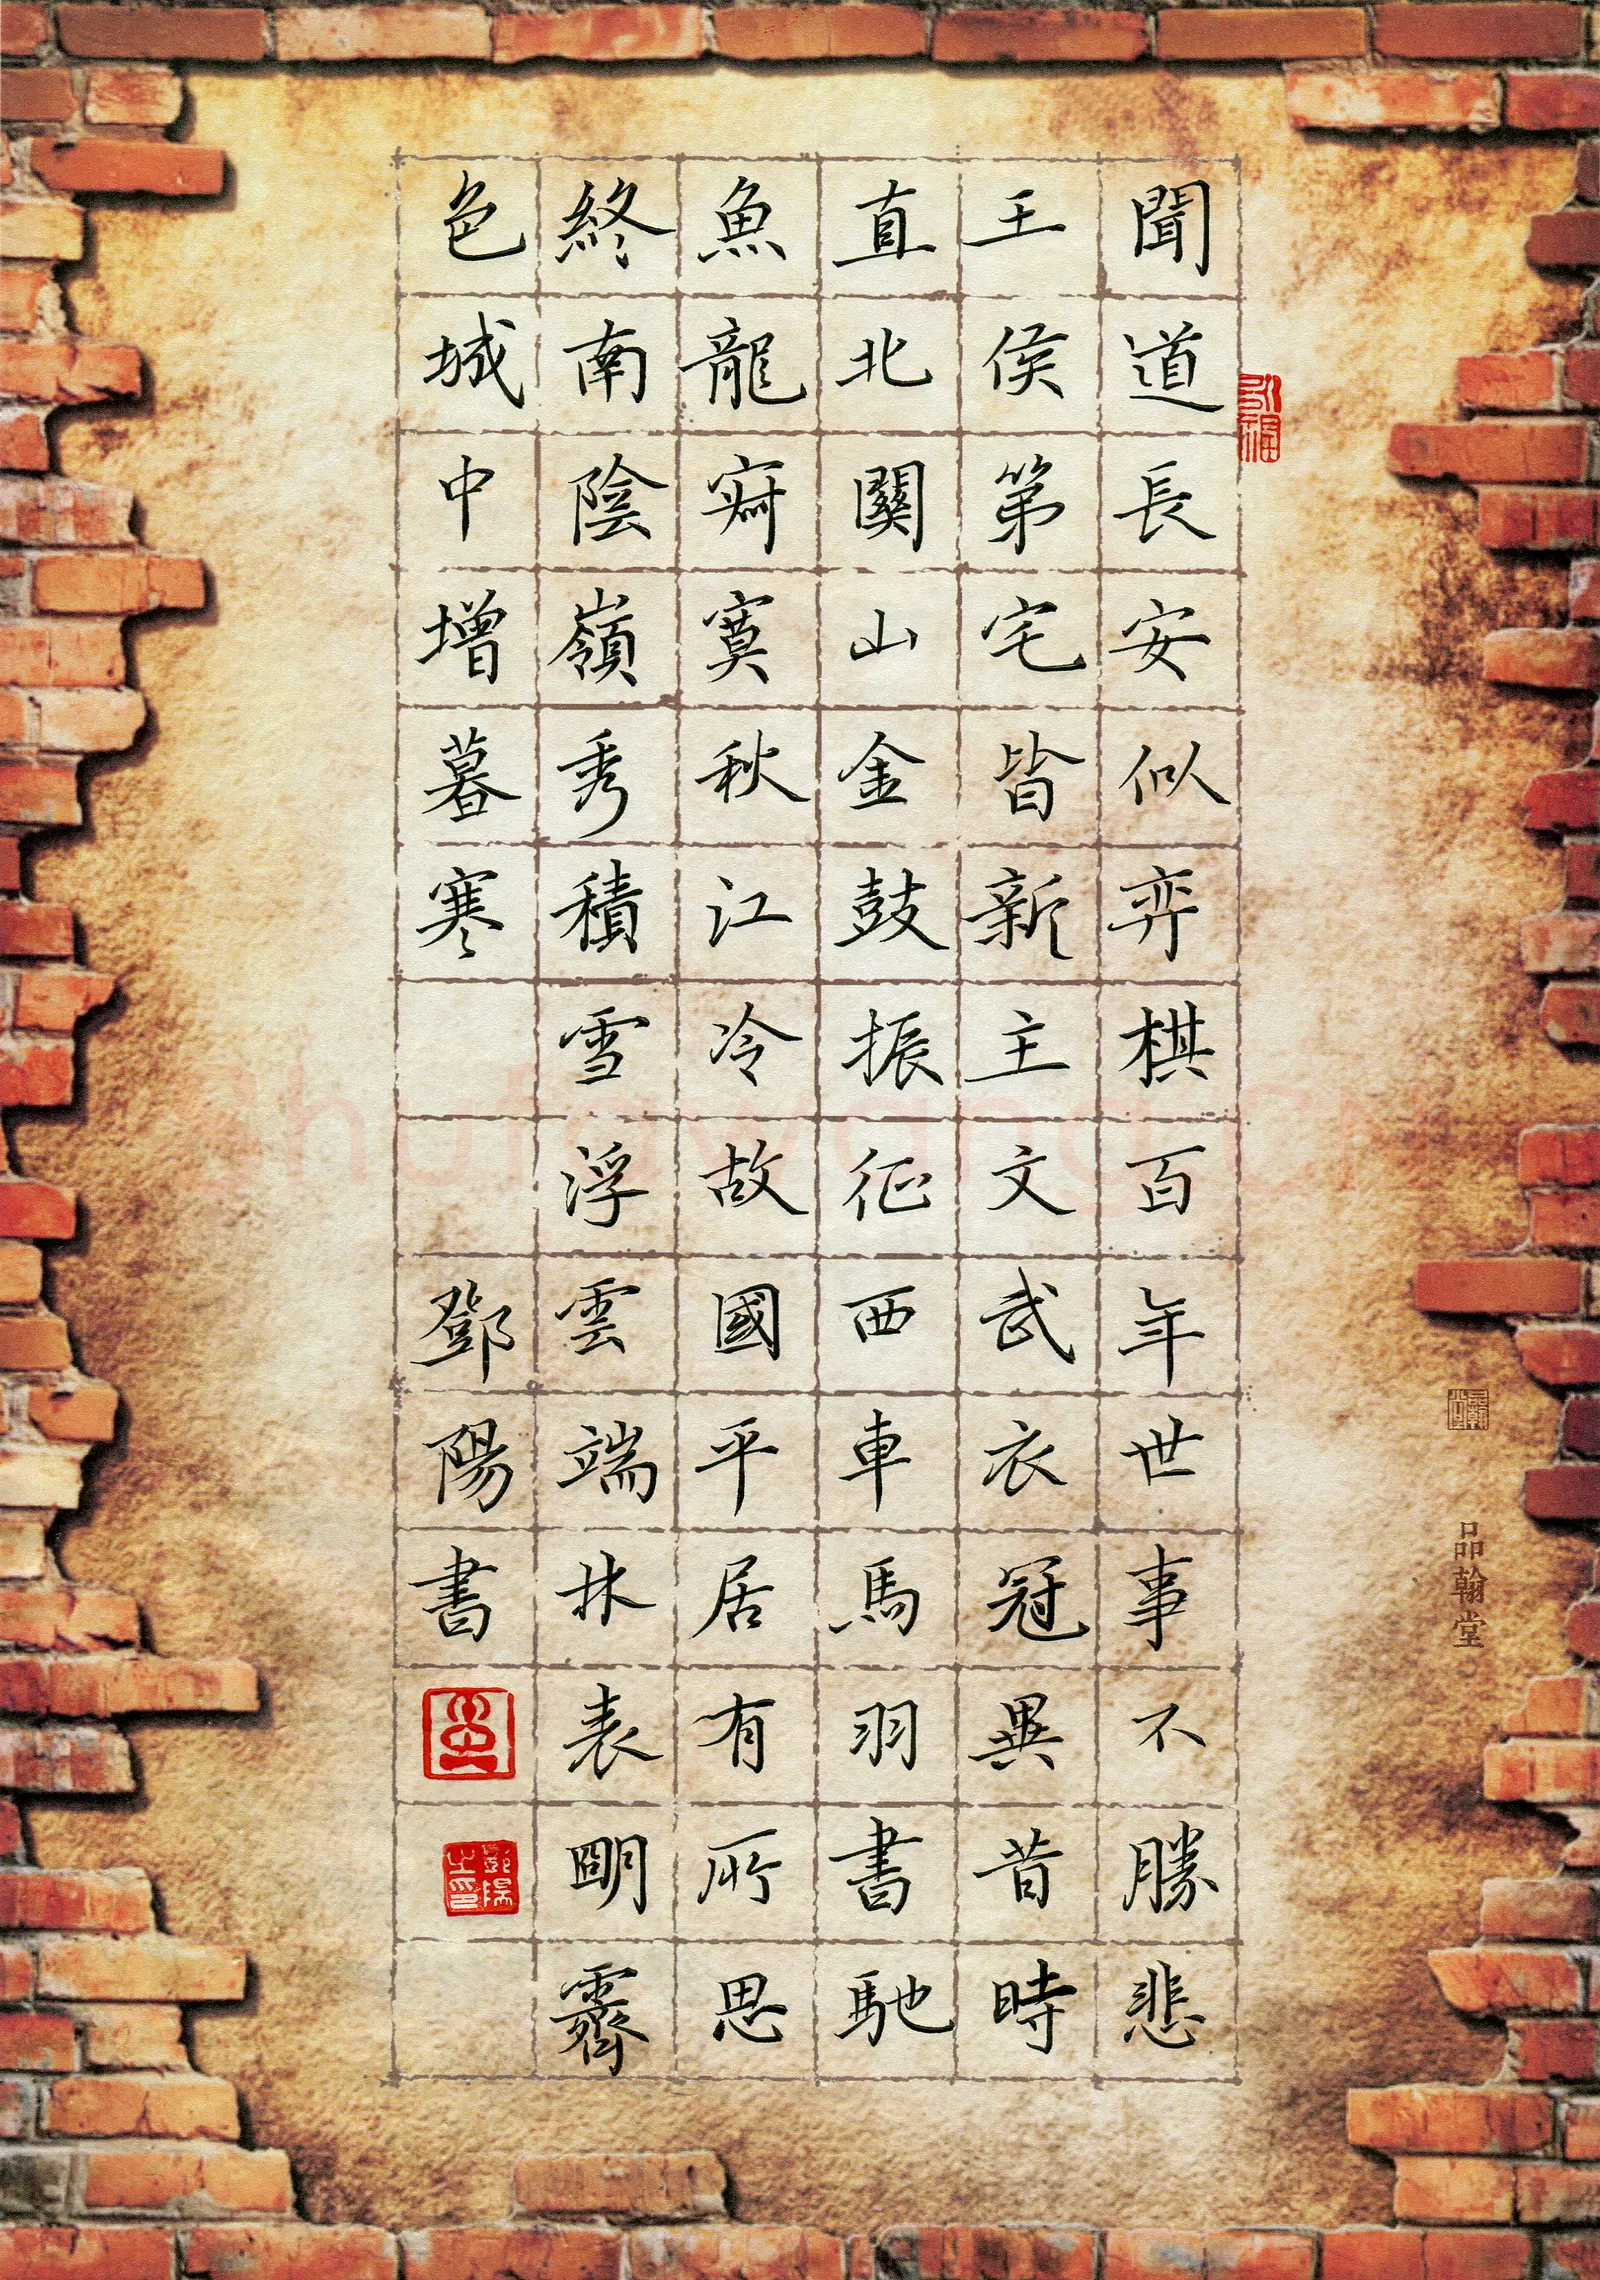 聞道長安似弈棋百年世事不勝悲
王侯第宅皆新主文武衣冠異昔時
直北關山金鼓振征西車馬羽書馳
魚龍寂寞秋江冷故國平居有所思
終南陰嶺秀積雪浮雲端林表明霽
色城中增暮寒
鄧陽書
鄧陽之印
品翰堂